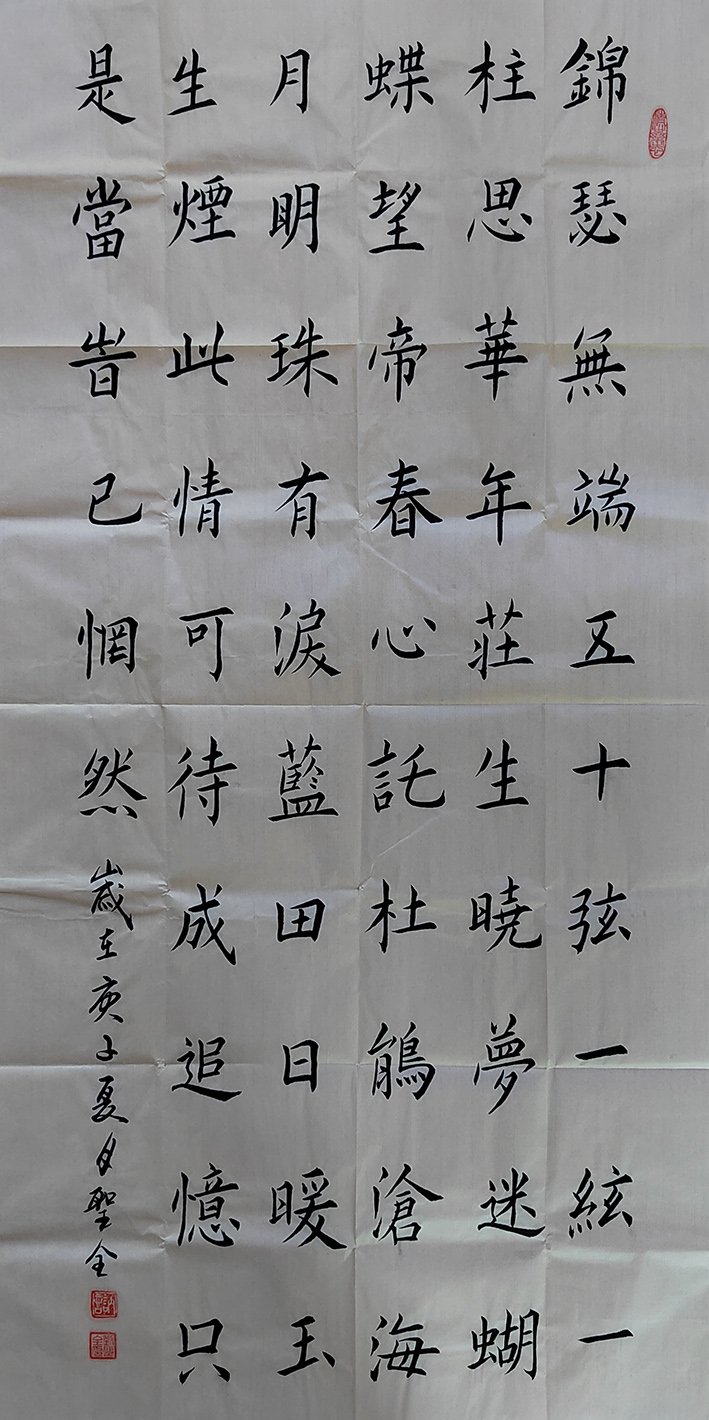 錦瑟無端五十弦一絃一
柱思華年莊生曉夢迷蝴
蝶望帝春心託杜鵑滄海
月明珠有淚藍田日暖玉
生煙此情可待成追憶只
是當旹已惘然
歲在庚子夏月聖全